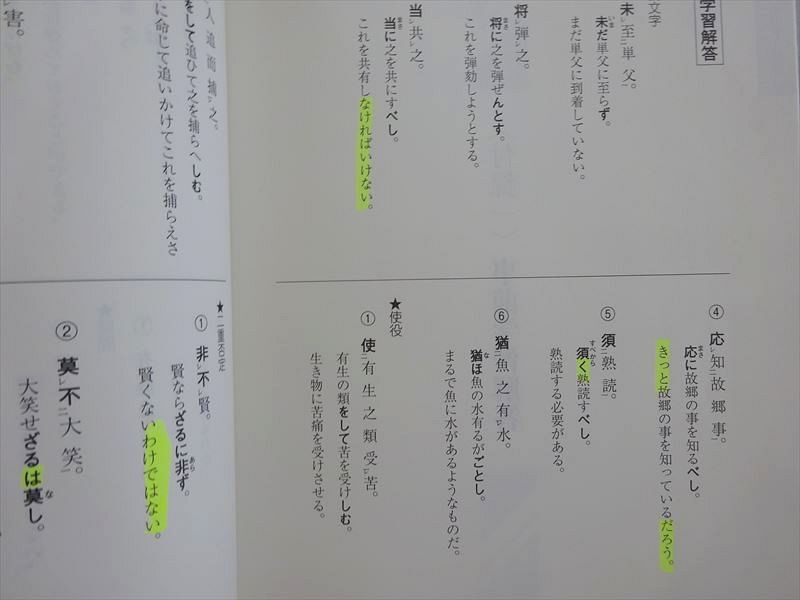 学習解答
文字
未レ至二単父一。
未だ単父に至らず。
まだ単父に到着していない。
将レ弾レ之。
将に之を弾ぜんとす。
これを弾劾しようとする。
当レ共レ之。
当に之を共にすべし。
これを共有しなければいけない。
④ 応レ知二故郷事一。
応に故郷の事を知るべし。
きっと故郷の事を知っているだろう。
⑤ 須二熟読一。
須く熟読すべし。
熟読する必要がある。
⑥ 猶二魚之有一レ水。
猶ほ魚の水有るがごとし。
まるで魚に水があるようなものだ。
★使役
① 使二有生之類受一レ苦。
有生の類をして苦を受けしむ。
生き物に苦痛を受けさせる。
人追而捕レ之。
をして追ひて之を捕らへしむ。
に命じて追いかけてこれを捕らえさ
害。
★二重否定
① 非レ不レ賢。
賢ならざるに非ず。
賢くないわけではない。
② 莫レ不二大笑一。
大笑せざるは莫し。